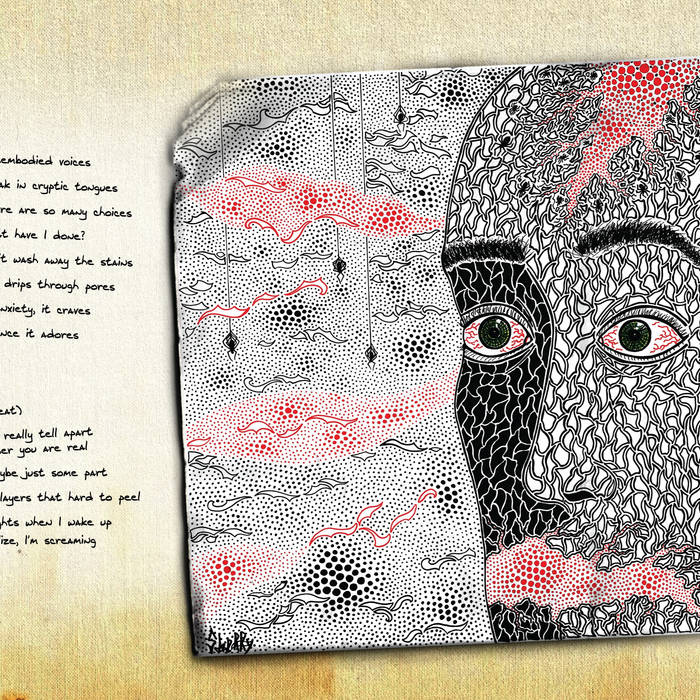 embodied voices
ak in cryptic tongues
re are so many choices
t have I done?
t wash away the stains
drips through pores
nxiety, it craves
nce it adores
eat)
really tell apart
er you are real
ybe just some part
layers that hard to peel
ghts when I wake up
ize, I'm screaming